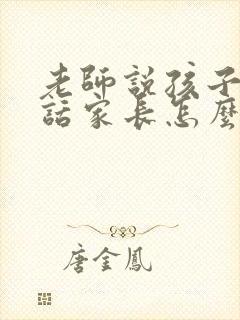 老師說孩子
話家長怎麼
唐金鳳